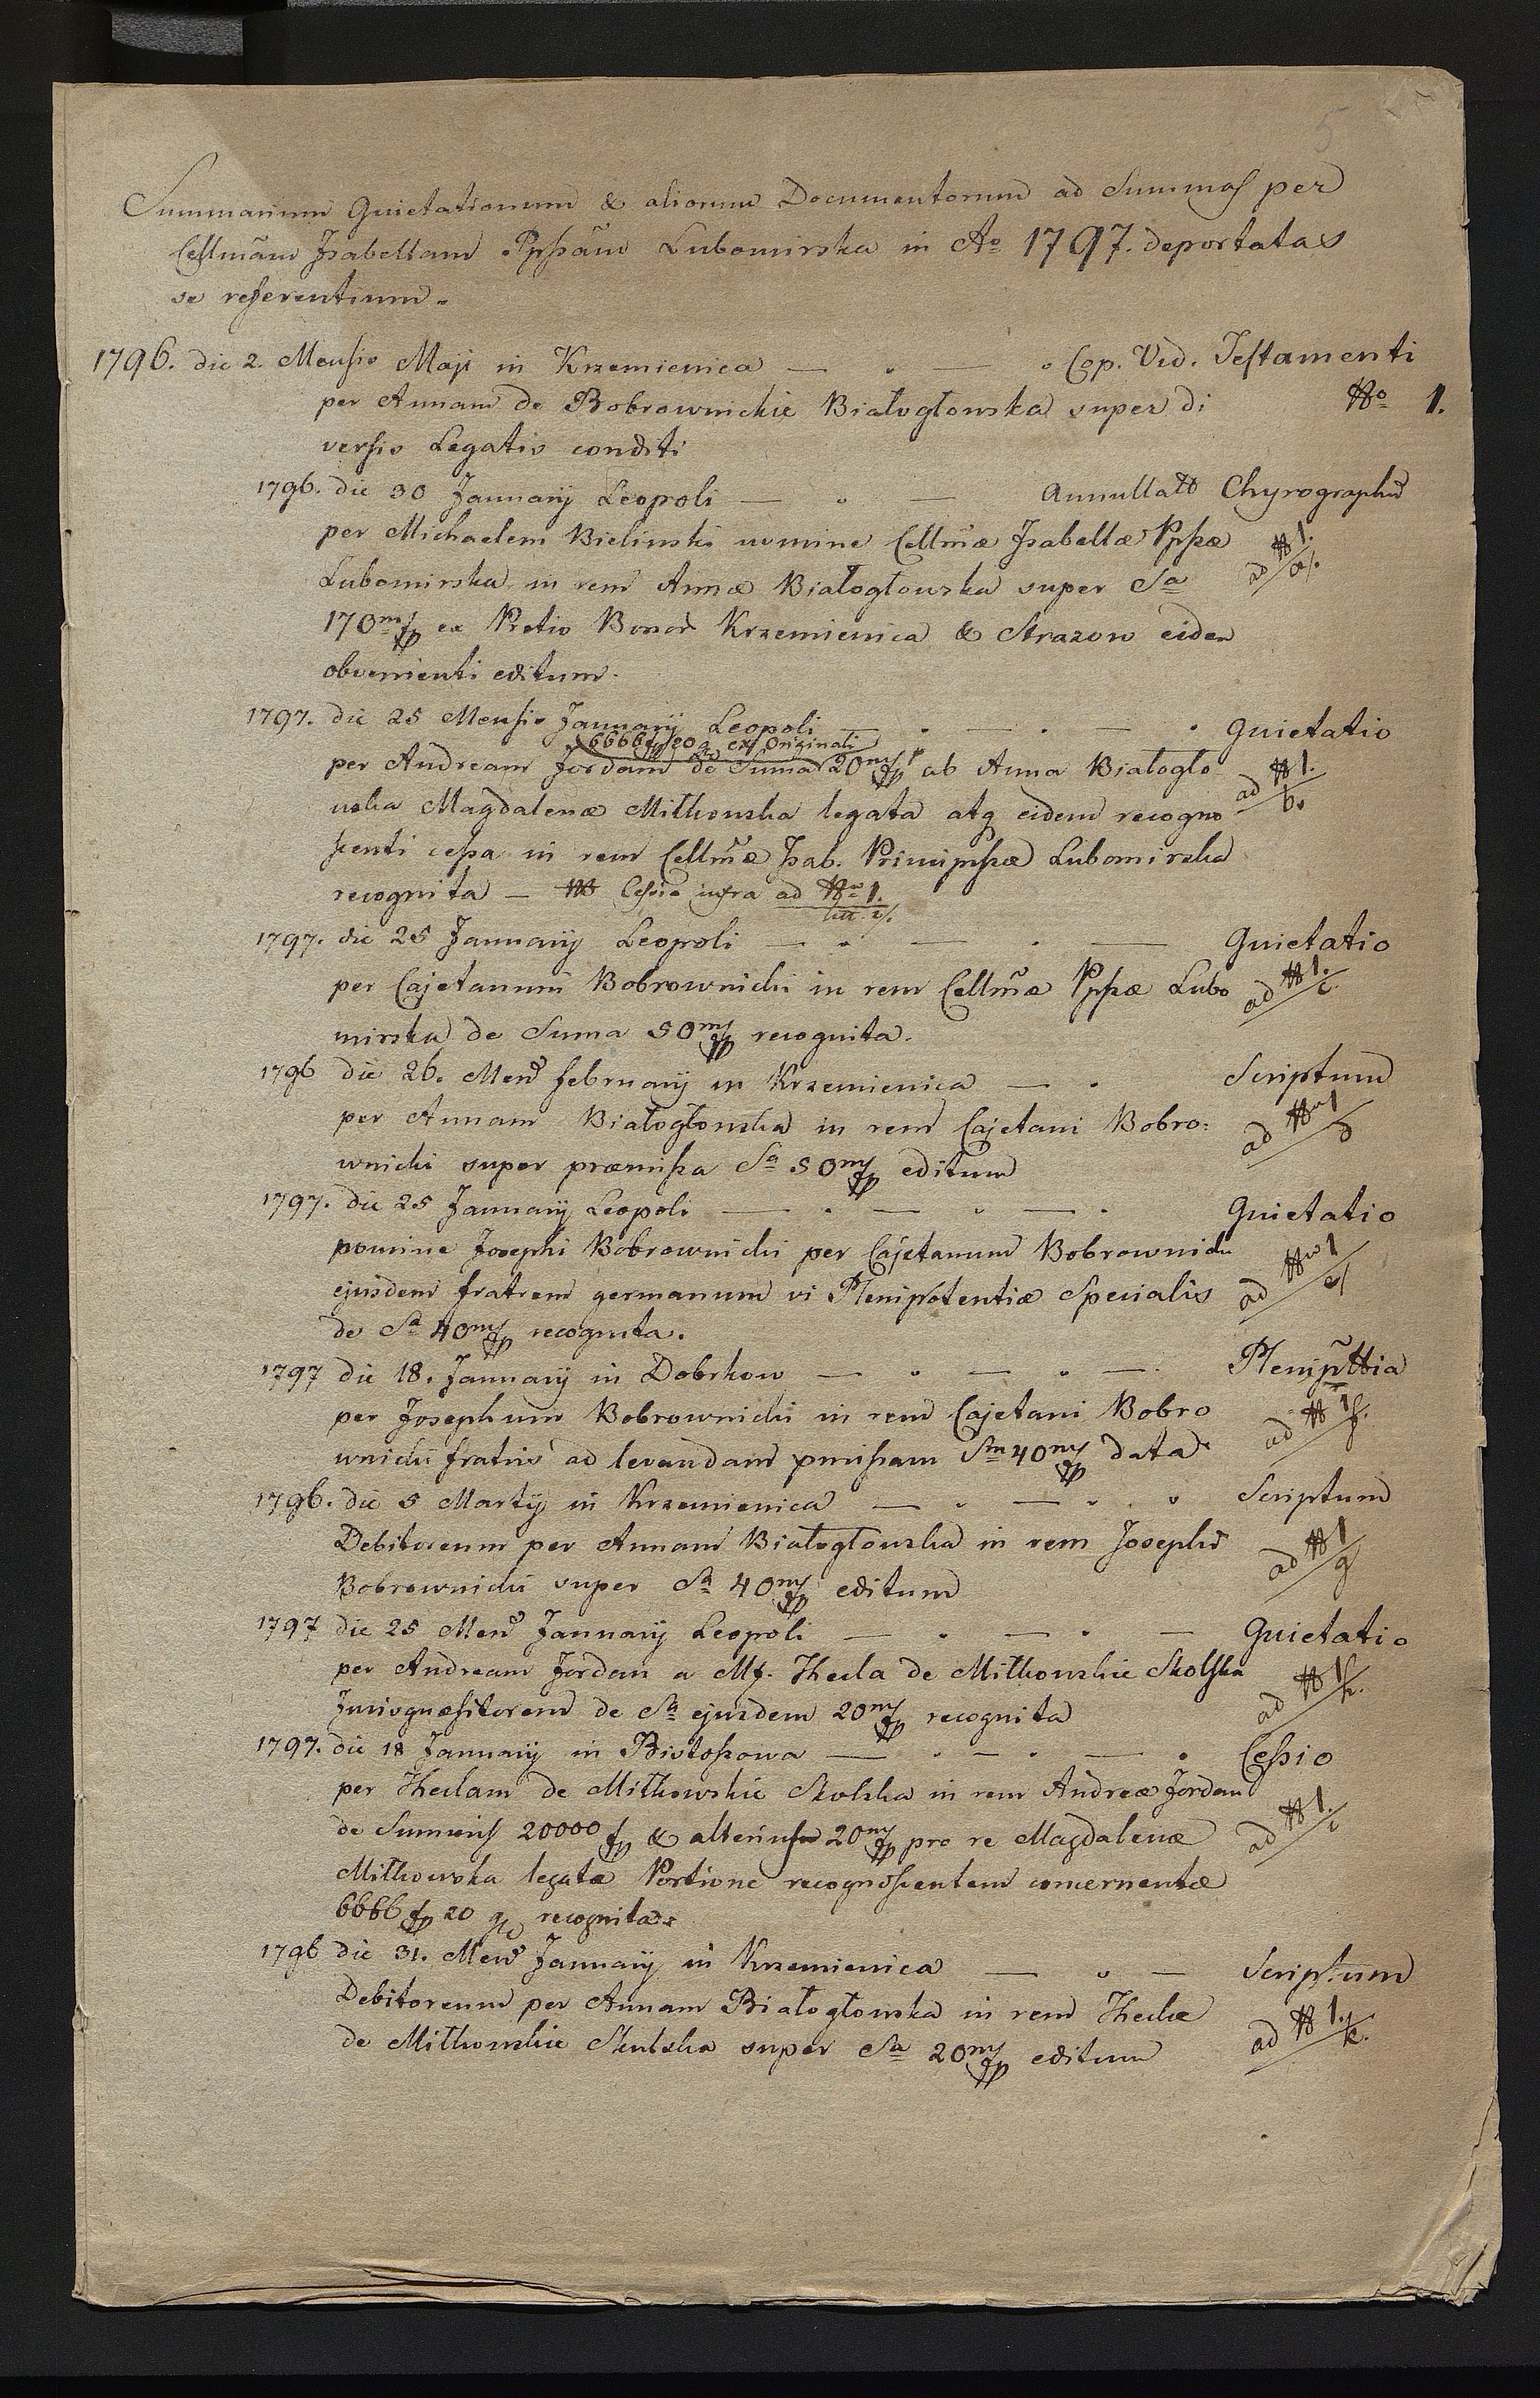 5
Summarium Quietationum & aliorum Documentorum ad Summas per
Cellmãm Isabellam Ppssãm Lubomirska in Ao 1797. deportatas
se referentium.
1796. die 2. Mensis Maji in Krzemienica — " — " Cop. Vid. Testamenti
per Annam de Bobrownickie Białogłowska super di No 1.
versis Legatis conditi
1796. die 30 January Leopoli — " — Annullatt Chyrographũ
per Michaelem Bielinski nomine Cellmæ Isabellæ Ppssæ ad N 1.
Lubomirska in rem Annæ Białogłowska super Sa a/.
170m/fp ex Pretio Bonor Krzemienica & Strazow eidem
obvenienti editum.
1797. die 25 Mensis January Leopoli — " — " — " Quietatio
6666 fp 20 g ex Originali
per Andream Jordam de Suma 20m/fp ab Anna Białogło ad N 1.
wska Magdalenæ Miłkowska legata atq eidem recogno b.
scenti cessa in rem Cellmæ Isab. Principssæ Lubomirska
recognita — NB Cessio infra ad No 1.
litt. i/.
1797. die 25 January Leopoli — " — " — Quietatio
per Cajetanum Bobrownicki in rem Cellmæ Ppssæ Lubo ad N 1.
mirska de Suma 50m/fp recognita. c.
1796 die 26. Mens February in Krzemienica — " Scriptum
per Annam Białogłowska in rem Cajetani Bobro: ad No 1
wnicki super præmissa Sa 50m/fp editum d
1797. die 25 January Leopoli — " — " — " Quietatio
nomine Josephi Bobrownicki per Cajetanum Bobrownicki ad No 1
ejusdem fratrem germanum vi Plenipotentiæ Specialis e/
de Sa 40m/fp recognita.
1797 die 18. January in Dobrkow — " — " — Plenipttia
per Josephum Bobrownicki in rem Cajetani Bobro ad N 1
wnicki fratris ad levandam pmissam Sm 40m/fp data f.
1796. die 5 Martij in Krzemienica — " — " . " Scriptum
Debitoreum per Annam Białogłowska in rem Josephi ad N 1
Bobrownicki super Sa 40m/fp editum g
1797 die 25 Mens January Leopoli — " — " — Quietatio
per Andream Jordan a Mf. Thecla de Miłkowskie Skolska ad N 1
Jurisquæsitorem de Sa ejusdem 20m/fp recognita h.
1797. die 18 January in — " — " — " Cessio
per Theclam de Miłkowskie Skolska in rem Andreæ Jordan
de Summis 20000 fp & alterius 20m/fp pro re Magdalenæ ad N 1.
Miłkowska legatæ Portione recognoscentem concernentæ i
6666 fp 20 g recognita.
1796 die 31. Mens January in Krzemienica — " — Scriptum
Debitoreum per Annam Białogłowska in rem Theclæ ad N 1.
de Miłkowskie Skolska super Sa 20m/fp editum k.